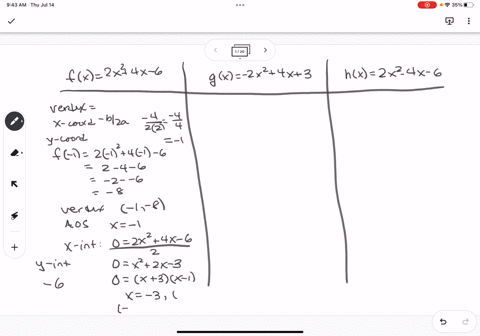 9:43 AM Thu Jul 14
35%
1/20
f(x)=2x²+4x-6
g(x)=-2x²+4x+3
h(x)=2x²-4x-6
vertex=
x-coord -b/2a -4/2(2) = -4/4
= -1
y-coord
f(-1) = 2(-1)²+4(-1)-6
= 2-4-6
= -2--6
= -8
vertex (-1,-8)
AOS x=-1
x-int: 0=2x²+4x-6
2
y-int 0=x²+2x-3
-6 0=(x+3)(x-1)
x=-3, (
(-